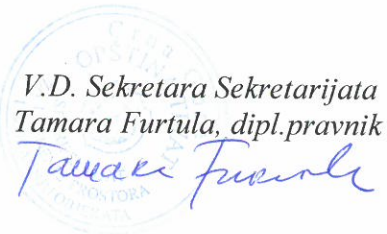 V.D. Sekretara Sekretarijata
Tamara Furtula, dipl.pravnik
Tamara Furtula